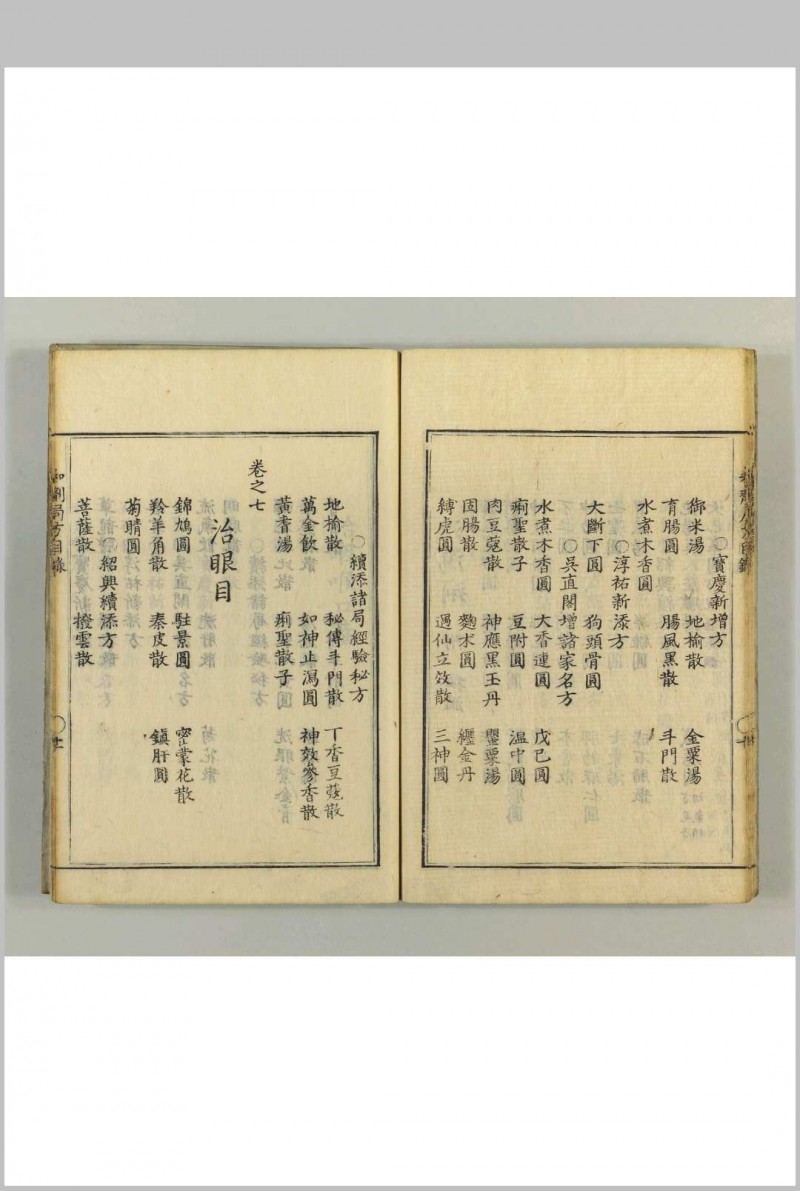 ○寶慶新增方
御米湯 地榆散 金粟湯
育腸圓 腸風黑散 斗門散
水煮木香圓
○淳祐新添方
大斷下圓 狗頭骨圓
○吳直閣增諸家名方
水煮木香圓 大香連圓 戊己圓
痢聖散子 豆附圓 溫中圓
肉豆蔻散 神應黑玉丹 罌粟湯
固腸散 麴朮圓 纏金丹
縛虎圓 遇仙立效散 三神圓
○續添諸局經驗秘方
地榆散 秘傳斗門散 丁香豆蔻散
萬金飲 如神止瀉圓 神效參香散
黃耆湯 痢聖散子
卷之七
治眼目
錦鳩圓 駐景圓 密蒙花散
羚羊角散 秦皮散 鎮肝圓
菊睛圓
○紹興續添方
菩薩散 撥雲散
和劑局方目錄